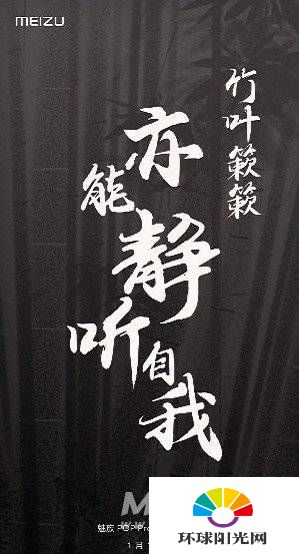 MEIZU
竹叶簌簌
亦能静听自我
魅族 POP Pro
1 月
环球阳光网